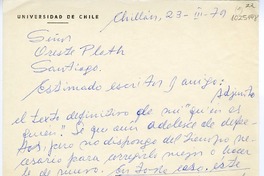 UNIVERSIDAD DE CHILE
Chillán, 23-III-79
Señor
Oreste Plath
Santiago.
Estimado escritor y amigo:
Adjunto
el texto definitivo de mi "quién es
quién". Sé que aún adolece de defec-
tos, pero no dispongo del tiempo ne-
cesario para arreglarlo mejor o hacer-
lo de nuevo. En todo caso, este